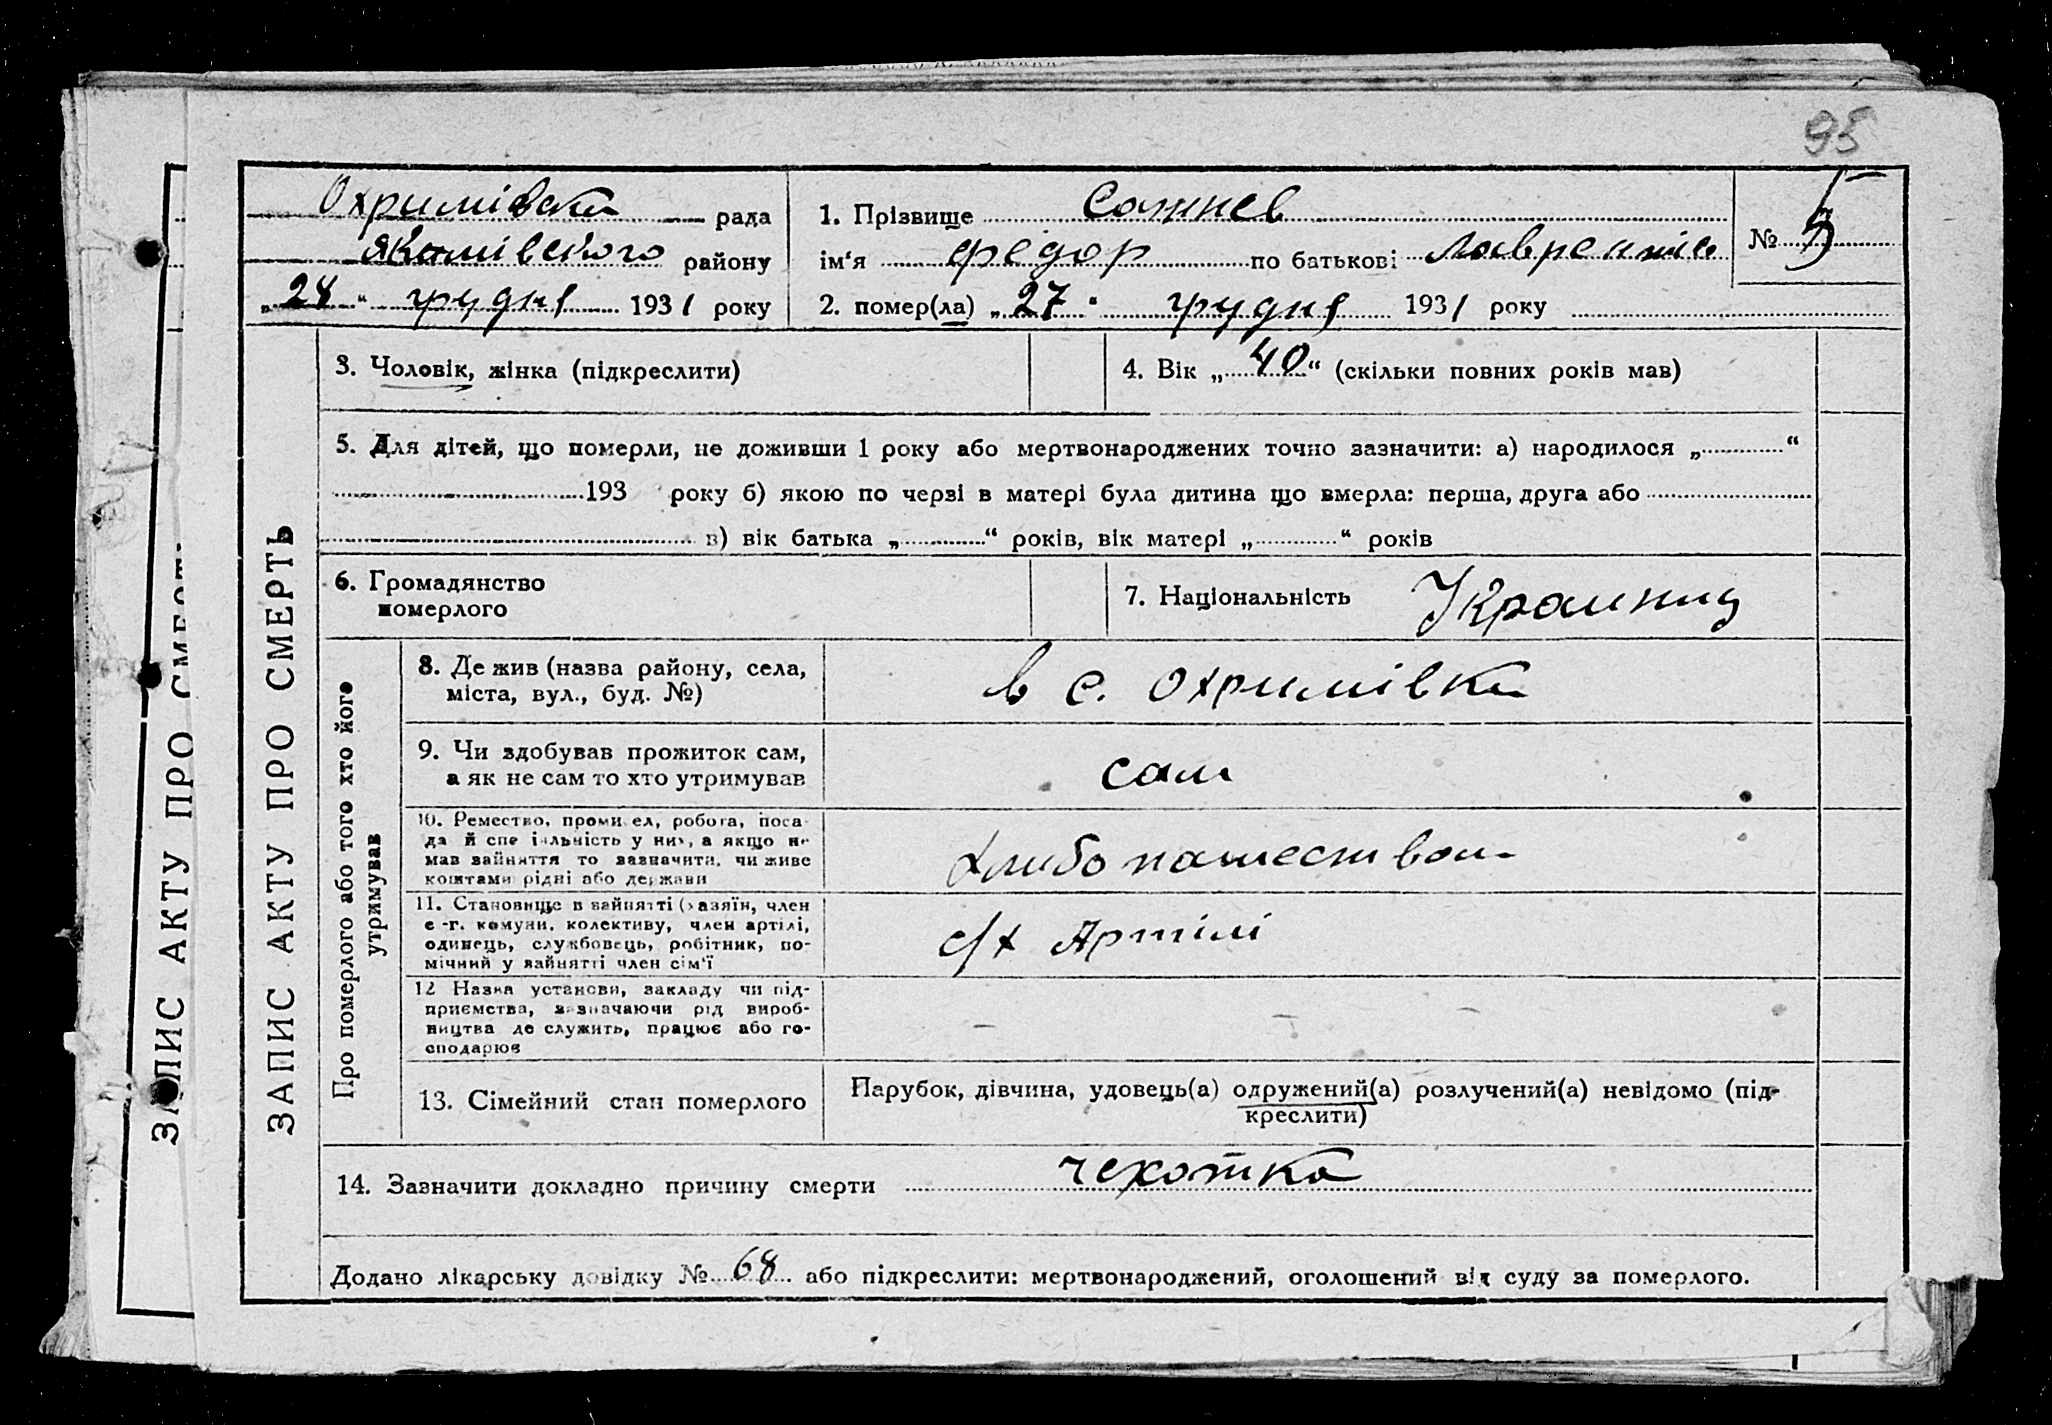 95
Охримівска рада
Якимівского району
„28“ грудня 1931 року
1. Прізвище
ім'я Федор по батькові
2. помер(ла) „27“ грудня 1931 року
№ 5
5
ЗАПИС АКТУ ПРО СМЕРТЬ
ЗАПИС АКТУ ПРО СМЕРТЬ
3. Чоловік, жінка (підкреслити)
4. Вік „40“ (скільки повних років мав)
5. Для дітей, що померли, не доживши 1 року або мертвонароджених точно зазначити: а) народилося „ “
193 року б) якою по черзі в матері була дитина що вмерла: перша, друга або
в) вік батька „ “ років, вік матері „ “ років
6. Громадянство
померлого
7. Національність Украинец
Про померлого або того хто його
утримував
8. Де жив (назва району, села,
міста, вул., буд. №)
в с. Охримівка
9. Чи здобував прожиток сам,
а як не сам то хто утримував
сам
10. Ремество, промисел, робота, поса-
да й спеціяльність у них, а якщо не
мав зайняття то зазначити, чи живе
коштами рідні або держави
хлибопашеством
11. Становище в зайнятті (хазяїн, член
с-г. комуни, колективу, член артілі,
одинець, службовець, робітник, по-
мічний у зайнятті член сім'ї
с/х Артілі
12 Назва установи, закладу чи під-
приємства, зазначаючи рід вироб-
ництва де служить, працює або го-
сподарює
– – –
13. Сімейний стан померлого
Парубок, дівчина, удовець(а) одружений(а) розлучений(а) невідомо (під-
креслити)
14. Зазначити докладно причину смерти чехотка
Додано лікарську довідку № 68 або підкреслити: мертвонароджений, оголошений від суду за померлого.